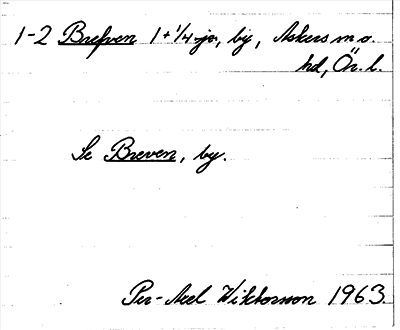 1-2 Brefven 1+1/4 jo, by, Askers m.o.
hd, Ör. l.
Se Breven, by.
Per-Axel Wiktorsson 1963.